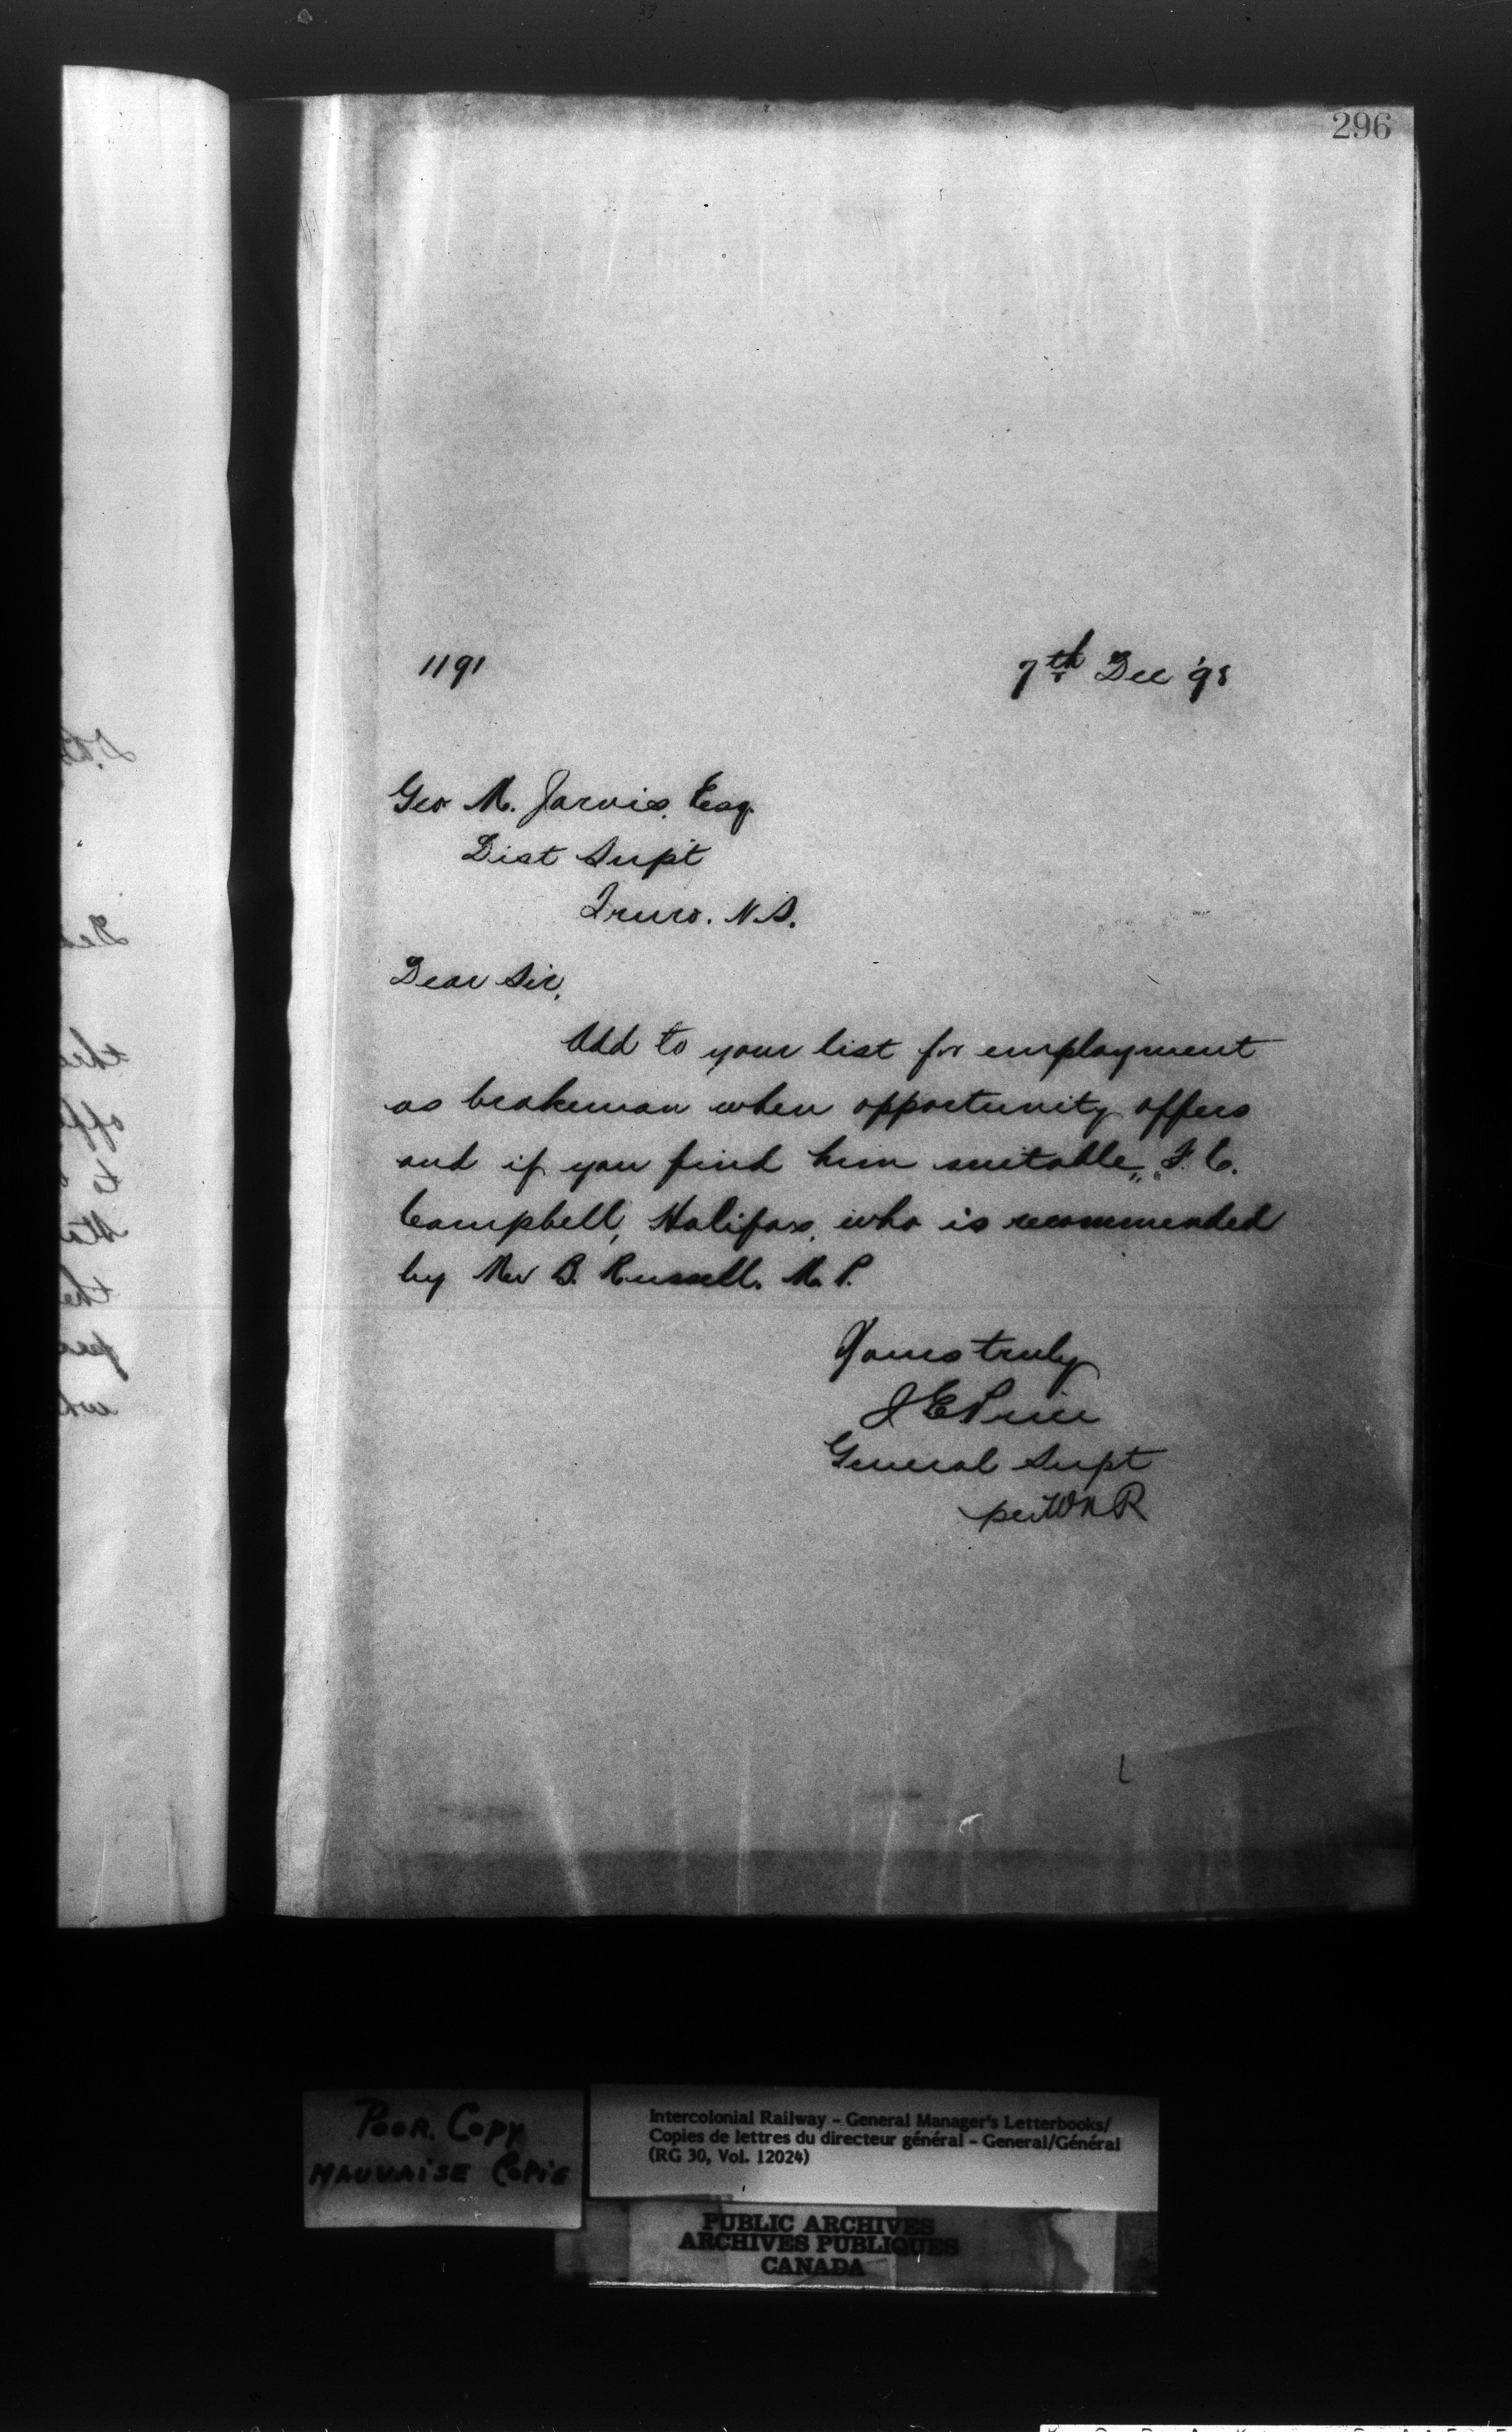 296
1191
7th Dec '98
Geo M. Jarvis, Esq.
Dist Supt
Truro. N.S.
Dear Sir,
Add to your list for employment
as brakeman when opportunity offers
and if you find him suitable, F. C.
Campbell, Halifax, who is recommended
by Mr B. Russell. M. P.
Yours truly
J E Price
General Supt
per W N R
POOR. COPY
MAUVAISE COPIE
Intercolonial Railway - General Manager's Letterbooks/
Copies de lettres du directeur général - General/Général
(RG 30, Vol. 12024)
PUBLIC ARCHIVES
ARCHIVES PUBLIQUES
CANADA